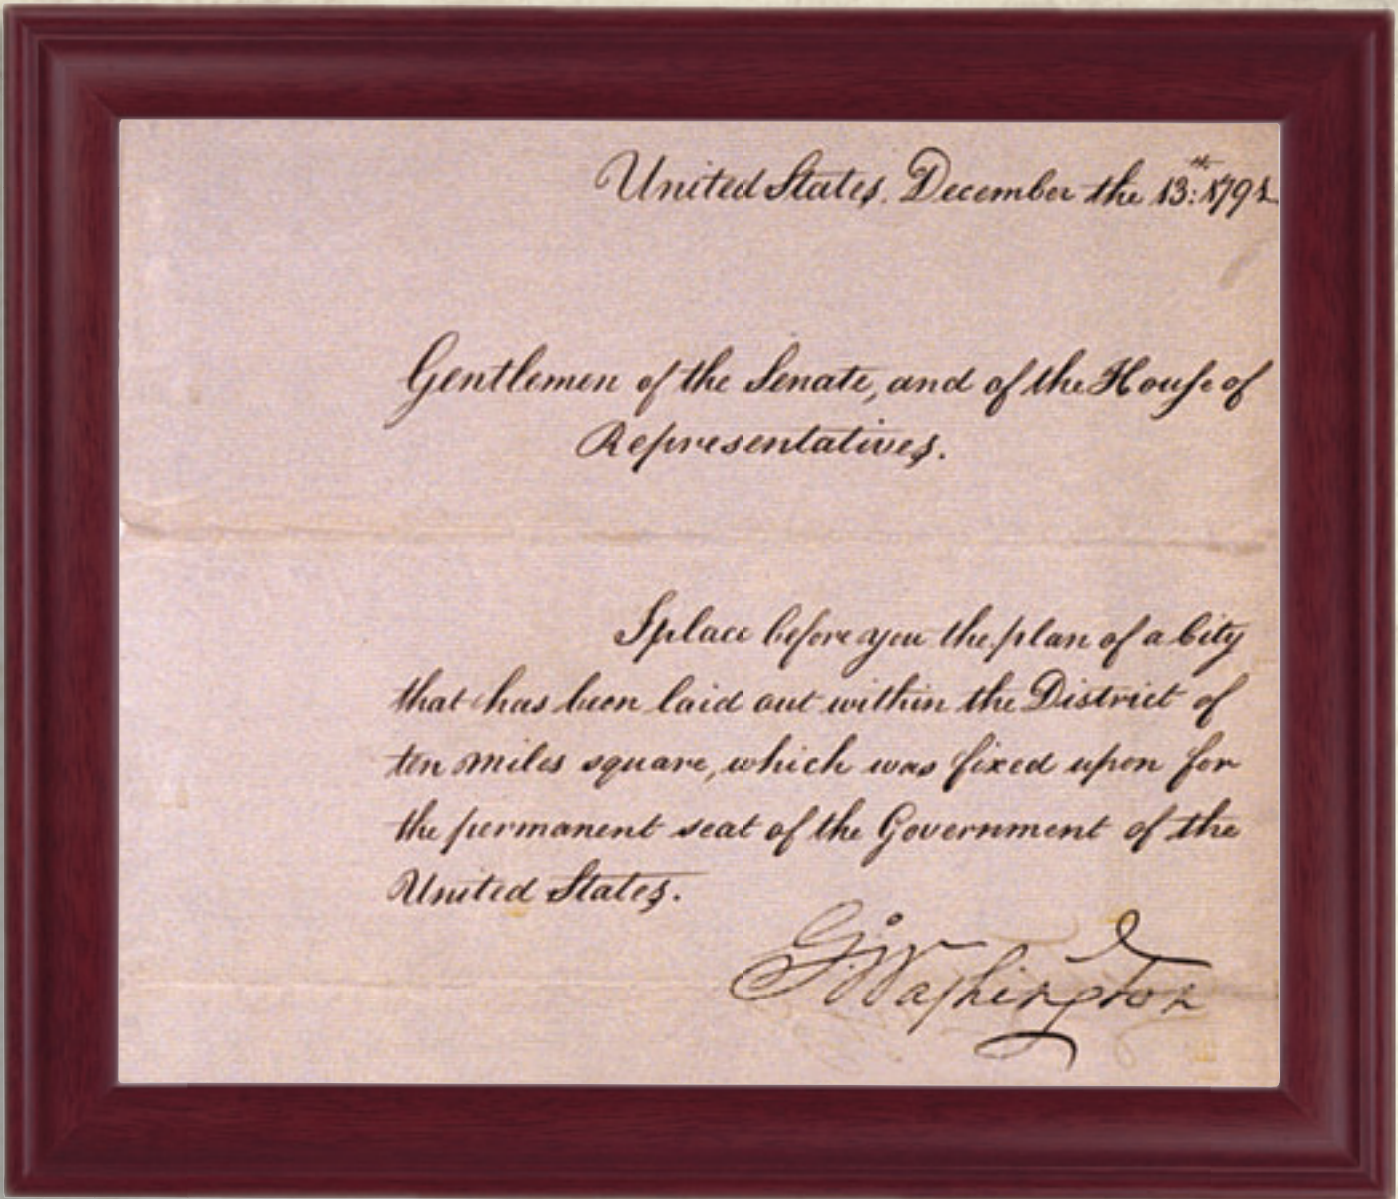 United States, December the 13:th 1791
Gentlemen of the Senate, and of the House of
Representatives.
I place before you the plan of a City
that has been laid out within the District of
ten miles square, which was fixed upon for
the permanent seat of the Government of the
United States.
G:Washington